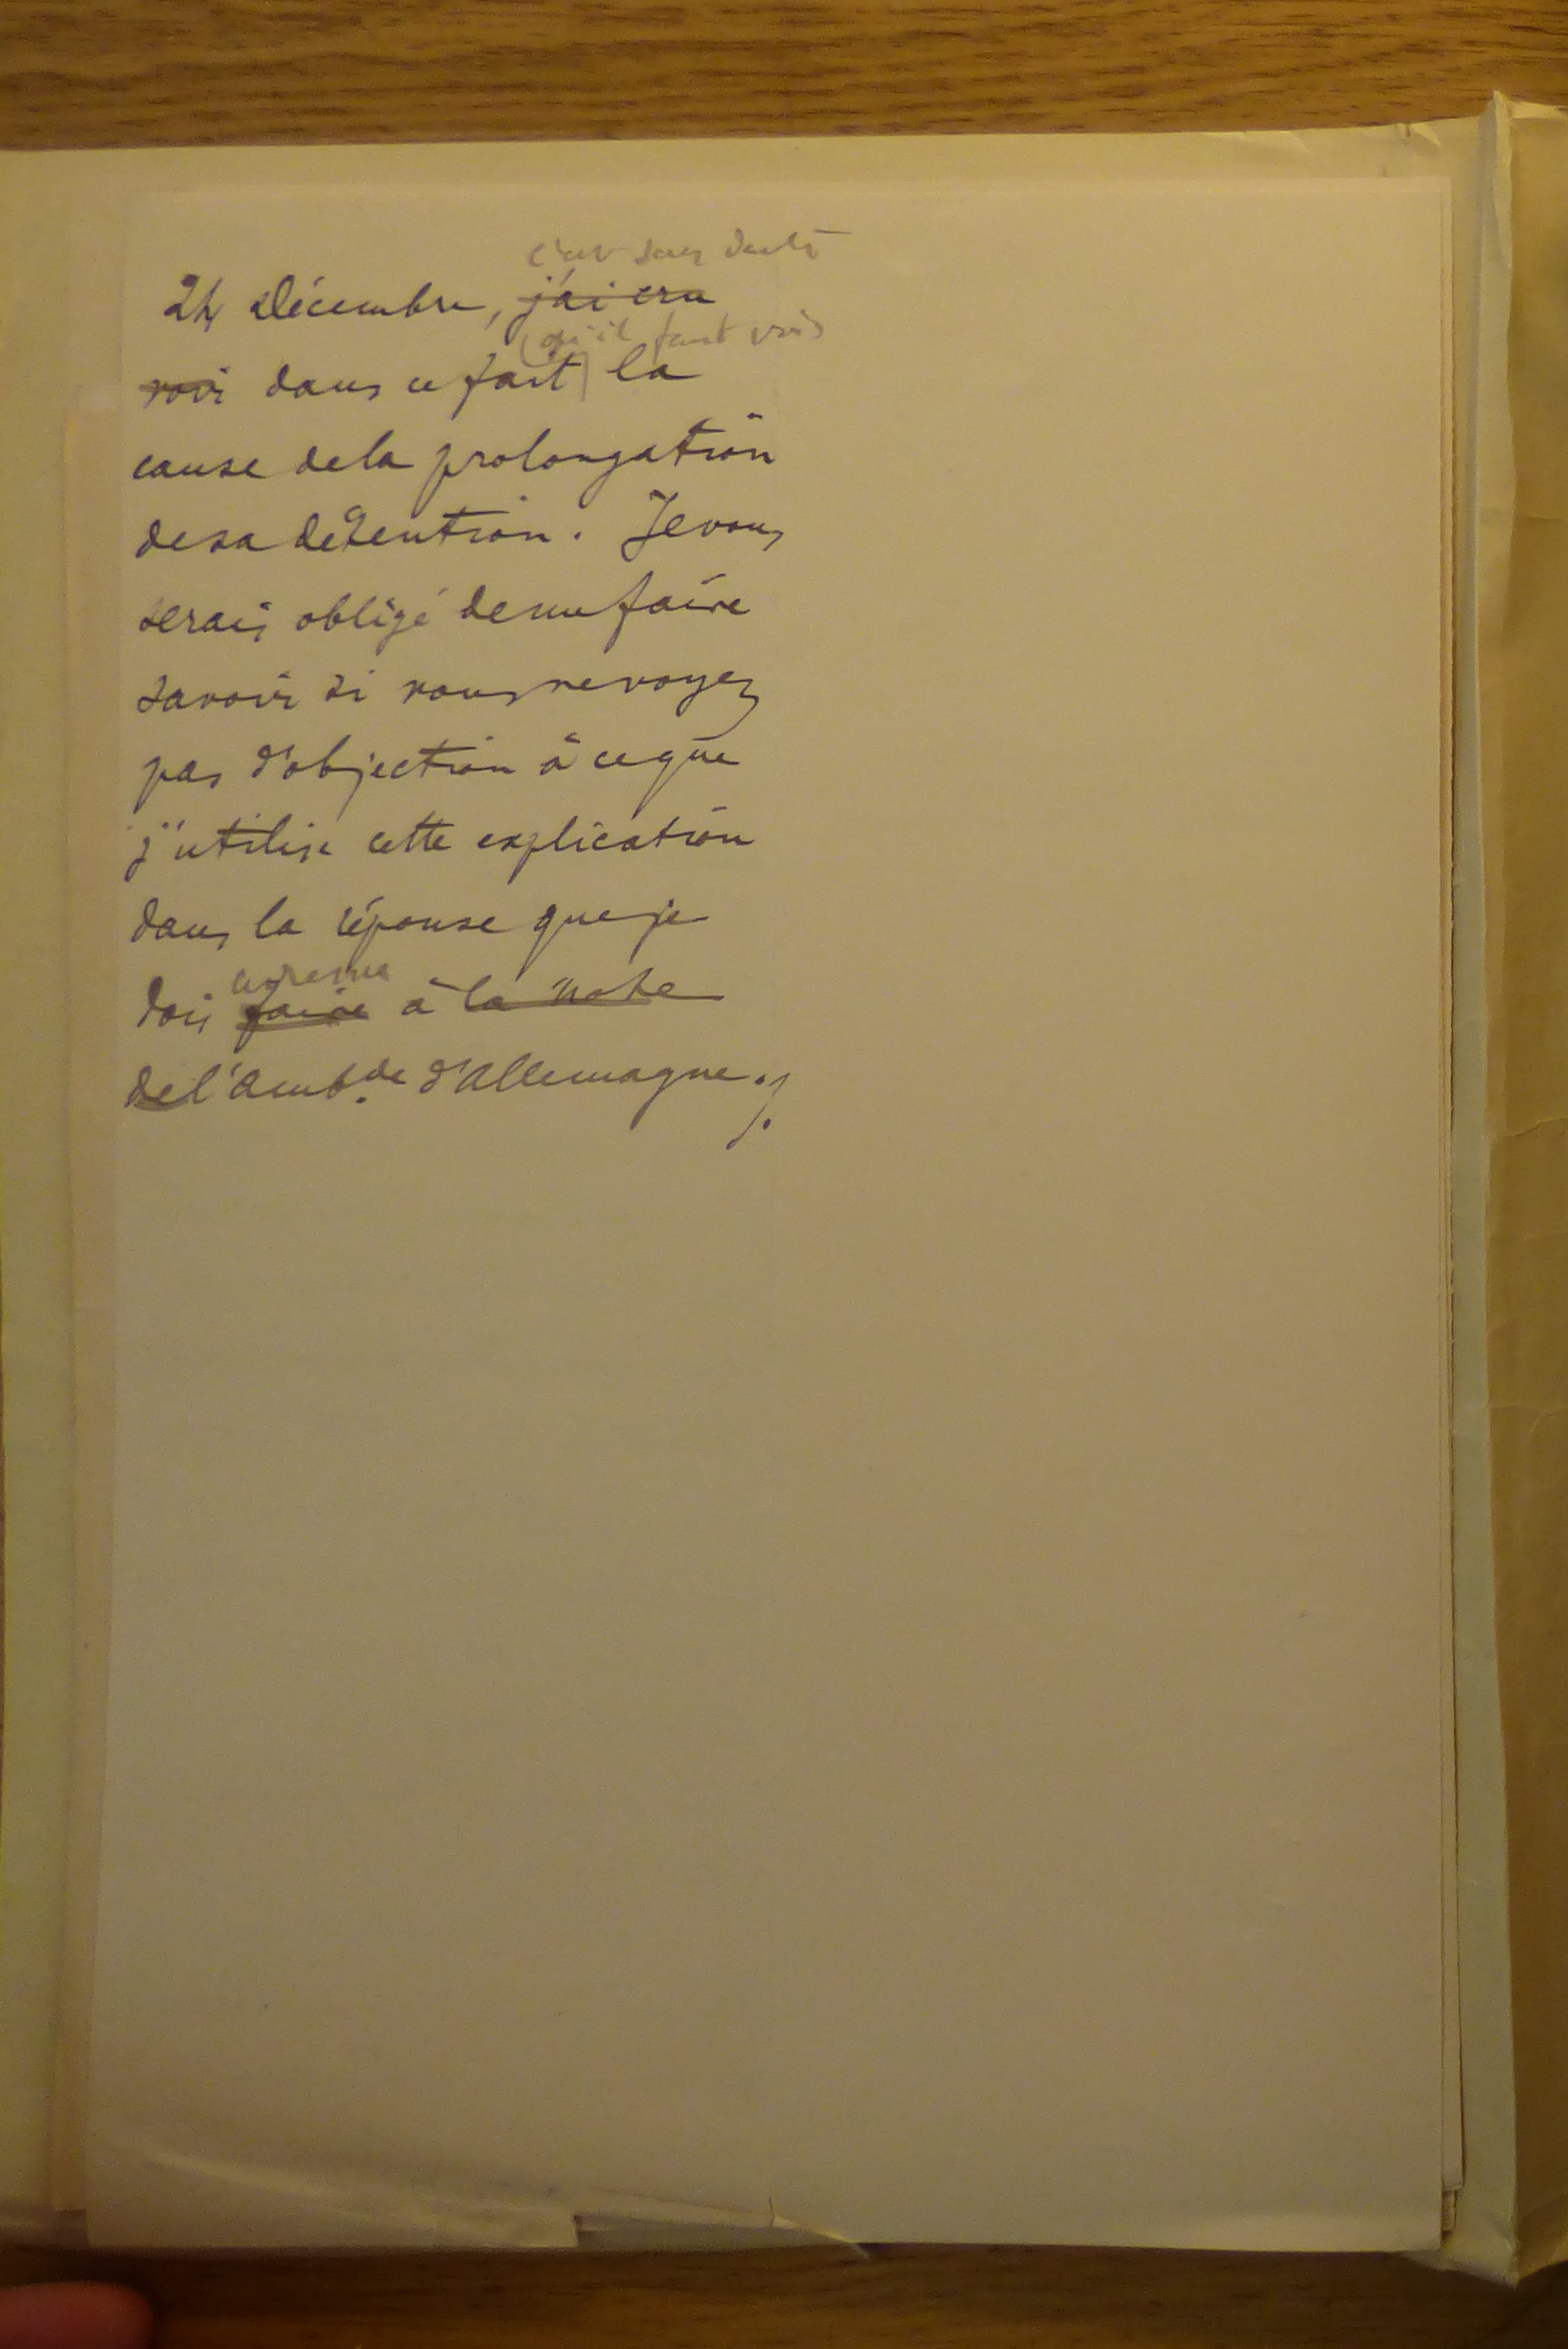 c'est sans doute
24 Décembre, j'ai cru
(qu'il faut voir)
voir dans ce fait la
cause de la prolongation
de sa détention. Je vous
serais obligé de me faire
savoir si vous ne voyez
pas d'objection à ce que
j'utilise cette explication
dans la réponse que je
dois faire à la note
de l'Ambde d'Allemagne./.